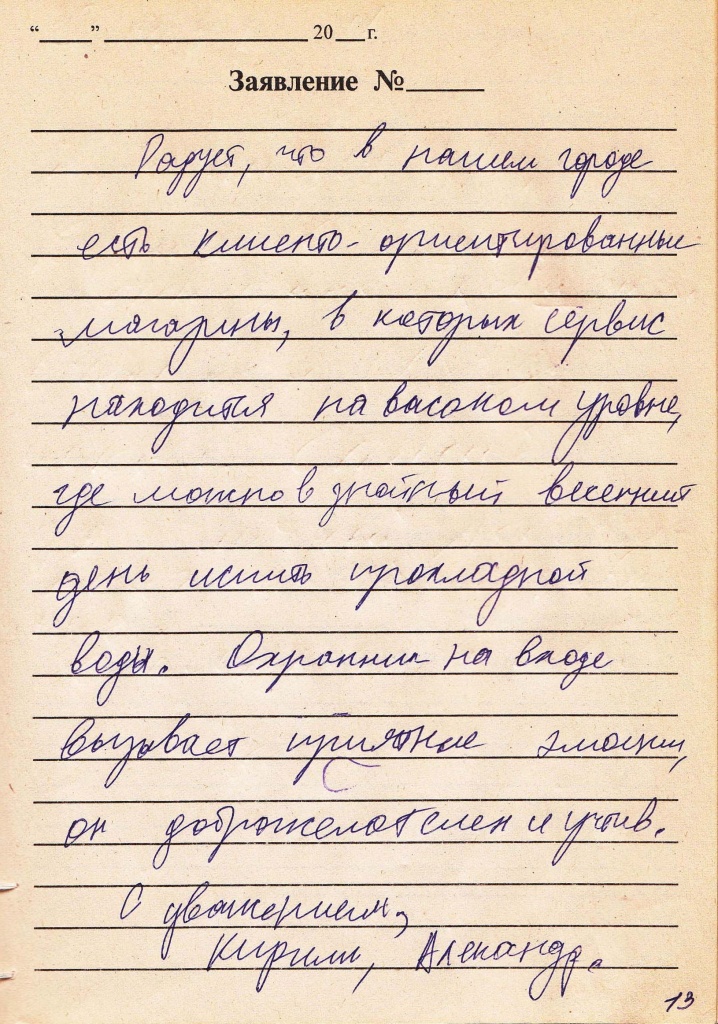 “____” ____________________ 20___г.
Заявление №______
Радует, что в нашем городе
есть клиенто-ориентированные
магазины, в которых сервис
находится на высоком уровне,
где можно в знойный весенний
день испить прохладной
воды. Охранник на входе
вызывает приятные эмоции,
он доброжелателен и учтив.
С уважением,
Кирилл, Александр.
13